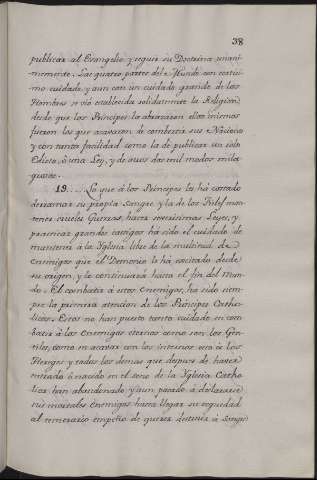 38
publicar al Evangelio y seguir su Doctrina unani-
memente. Las quatro partes del Mundo con cortisi-
mo cuidado, y aun con un cuidado grande de los
Hombres se vió establecida solidamente la Religion;
desde que los Principes la abrazaron ellos mismos
fueron los que acavaron de combertir sus Nacions
y con tanta facilidad como la de publicar un solo
Edicto, ò una Ley, y de aver dos mil modos mila
grosos.
19.... Lo que à los Principes les ha costado
derramar su propia Sangre y la de los
tener crueles Guerras, hacer severisimas Leyes, y
practicar grandes castigos ha sido el cuidado de
mantener à la Yglesia libre de la multitud de
enemigos que el Demonio le ha socitado desde
su origen, y la continuará hasta el fin del Mun-
do. El combatir à estos Enemigos, ha sido siem-
pre la primera atencion de los Principes Catho-
licos. Estos no han puesto tanto cuidado en com
batir à los Enemigos eternos como son los Gen-
tiles, como en acavar con los interiores que son los
Hereges y todos los demas que despues de haver
entrado ò nacido en el seno de la Yglesia Catho
lica han abandonado y aun pasado à declararse
sus mortales Enemigos hasta llegar su ceguedad
al temerario empeño de querer destruir à Sangre